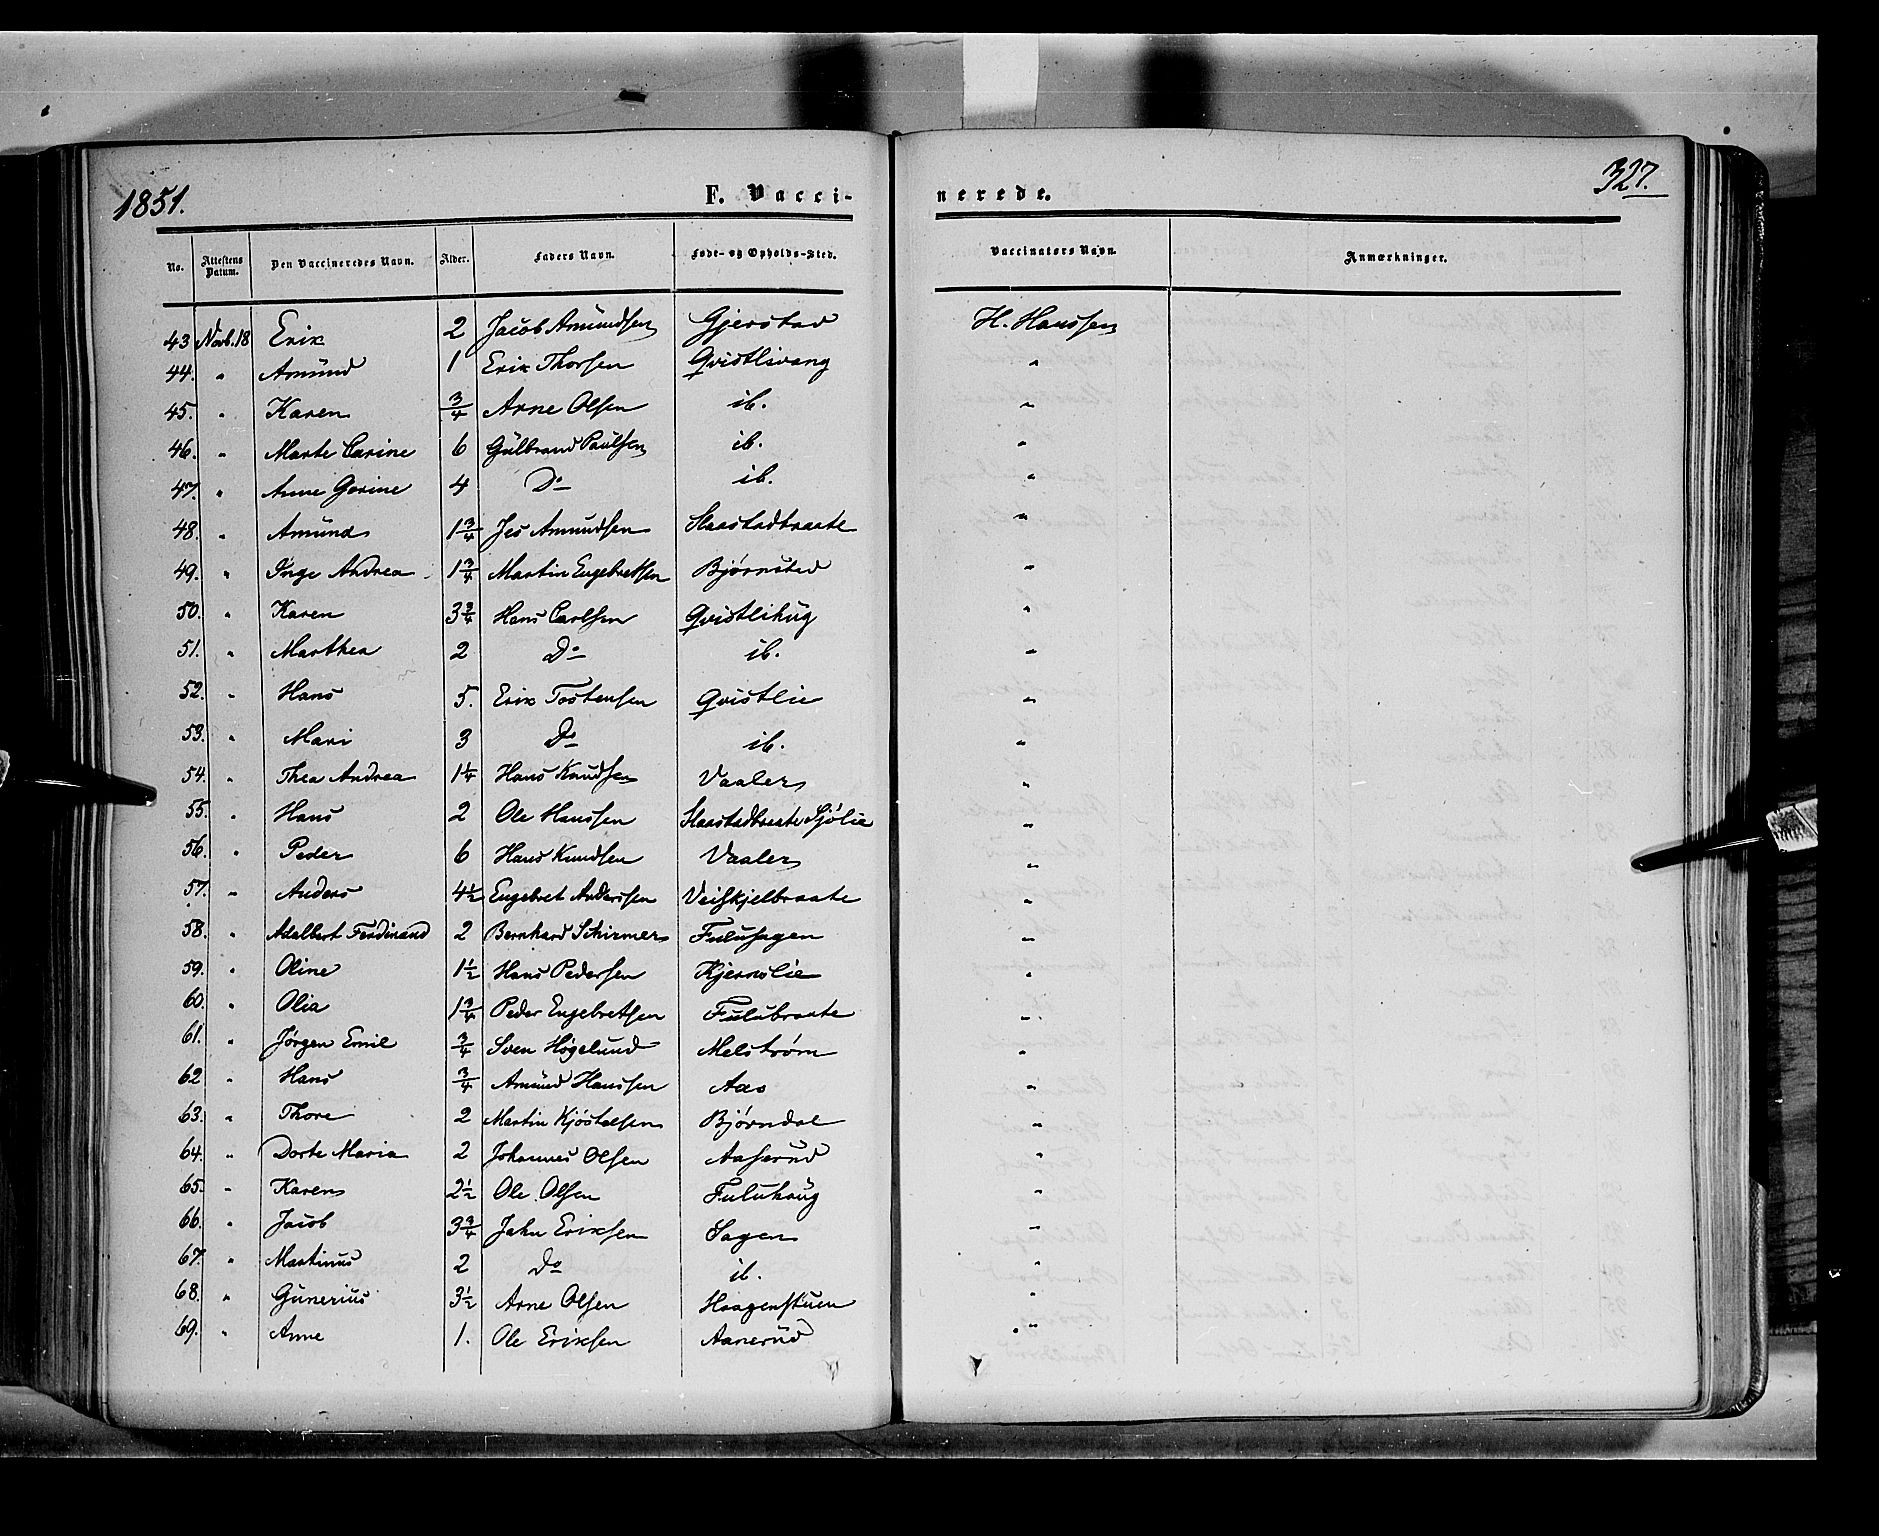 1851.
F. Vacci-
nerede.
327.
No. Attestens Datum. Den Vaccineredes Navn. Alder. Faders Navn. Føde- og Opholds-Sted. Vaccinatørs Navn. Anmærkninger.
43 Novb. 18 Erik 2 Jacob Amundsen Gjerstad H. Hanssen
44. " Amund 1 Erik Thorsen Qvistlivang "
45. " Karen 3/4 Arne Olsen ib. "
46. " Marte Carine 6 Gulbrand Paulsen ib. "
47. " Anne Gorine 4 Do ib. "
48. " Amund 1 3/4 Jes Amundsen Slaastadbraate "
49. " Inge Andrea 1 3/4 Martin Engebretsen Bjørnstad "
50. " Karen 3 3/4 Hans Carlsen Qvistlihug "
51. " Marthea 2 Do ib. "
52. " Hans 5. Erik Tostensen Qvistlie "
53. " Mari 3 Do ib. "
54. " Thea Andrea 1 1/4 Hans Knudsen Vaaler "
55. " Hans 2 Ole Hanssen Slaastadbraate Sjølie "
56. " Peder 6 Hans Knudsen Vaaler "
57. " Anders 4 1/2 Engebret Anderssen Veiskjelbraate "
58. " Adalbert Ferdinand 2 Bernhard Schirmer Fulusagen "
59. " Oline 1 1/2 Hans Pedersen Kjernslie "
60. " Olia 1 3/4 Peder Engebretsen Fulubraate "
61. " Jørgen Emil 3/4 Sven Høgelund Melstrøm "
62 " Hans 3/4 Amund Hanssen Aas "
63. " Thore 2 Martin Kjøstelsen Bjørndal "
64. " Dorte Maria 2 Johannes Olsen Aaserud "
65. " Karen 2 1/2 Ole Olsen Fuluhaug "
66. " Jacob 3 3/4 Jahn Eriksen Sagen "
67. " Martinus 2 Do ib. "
68. " Gunerius 3 1/2 Arne Olsen Haagenstuen "
69. " Anne 1. Ole Eriksen Aanerud "